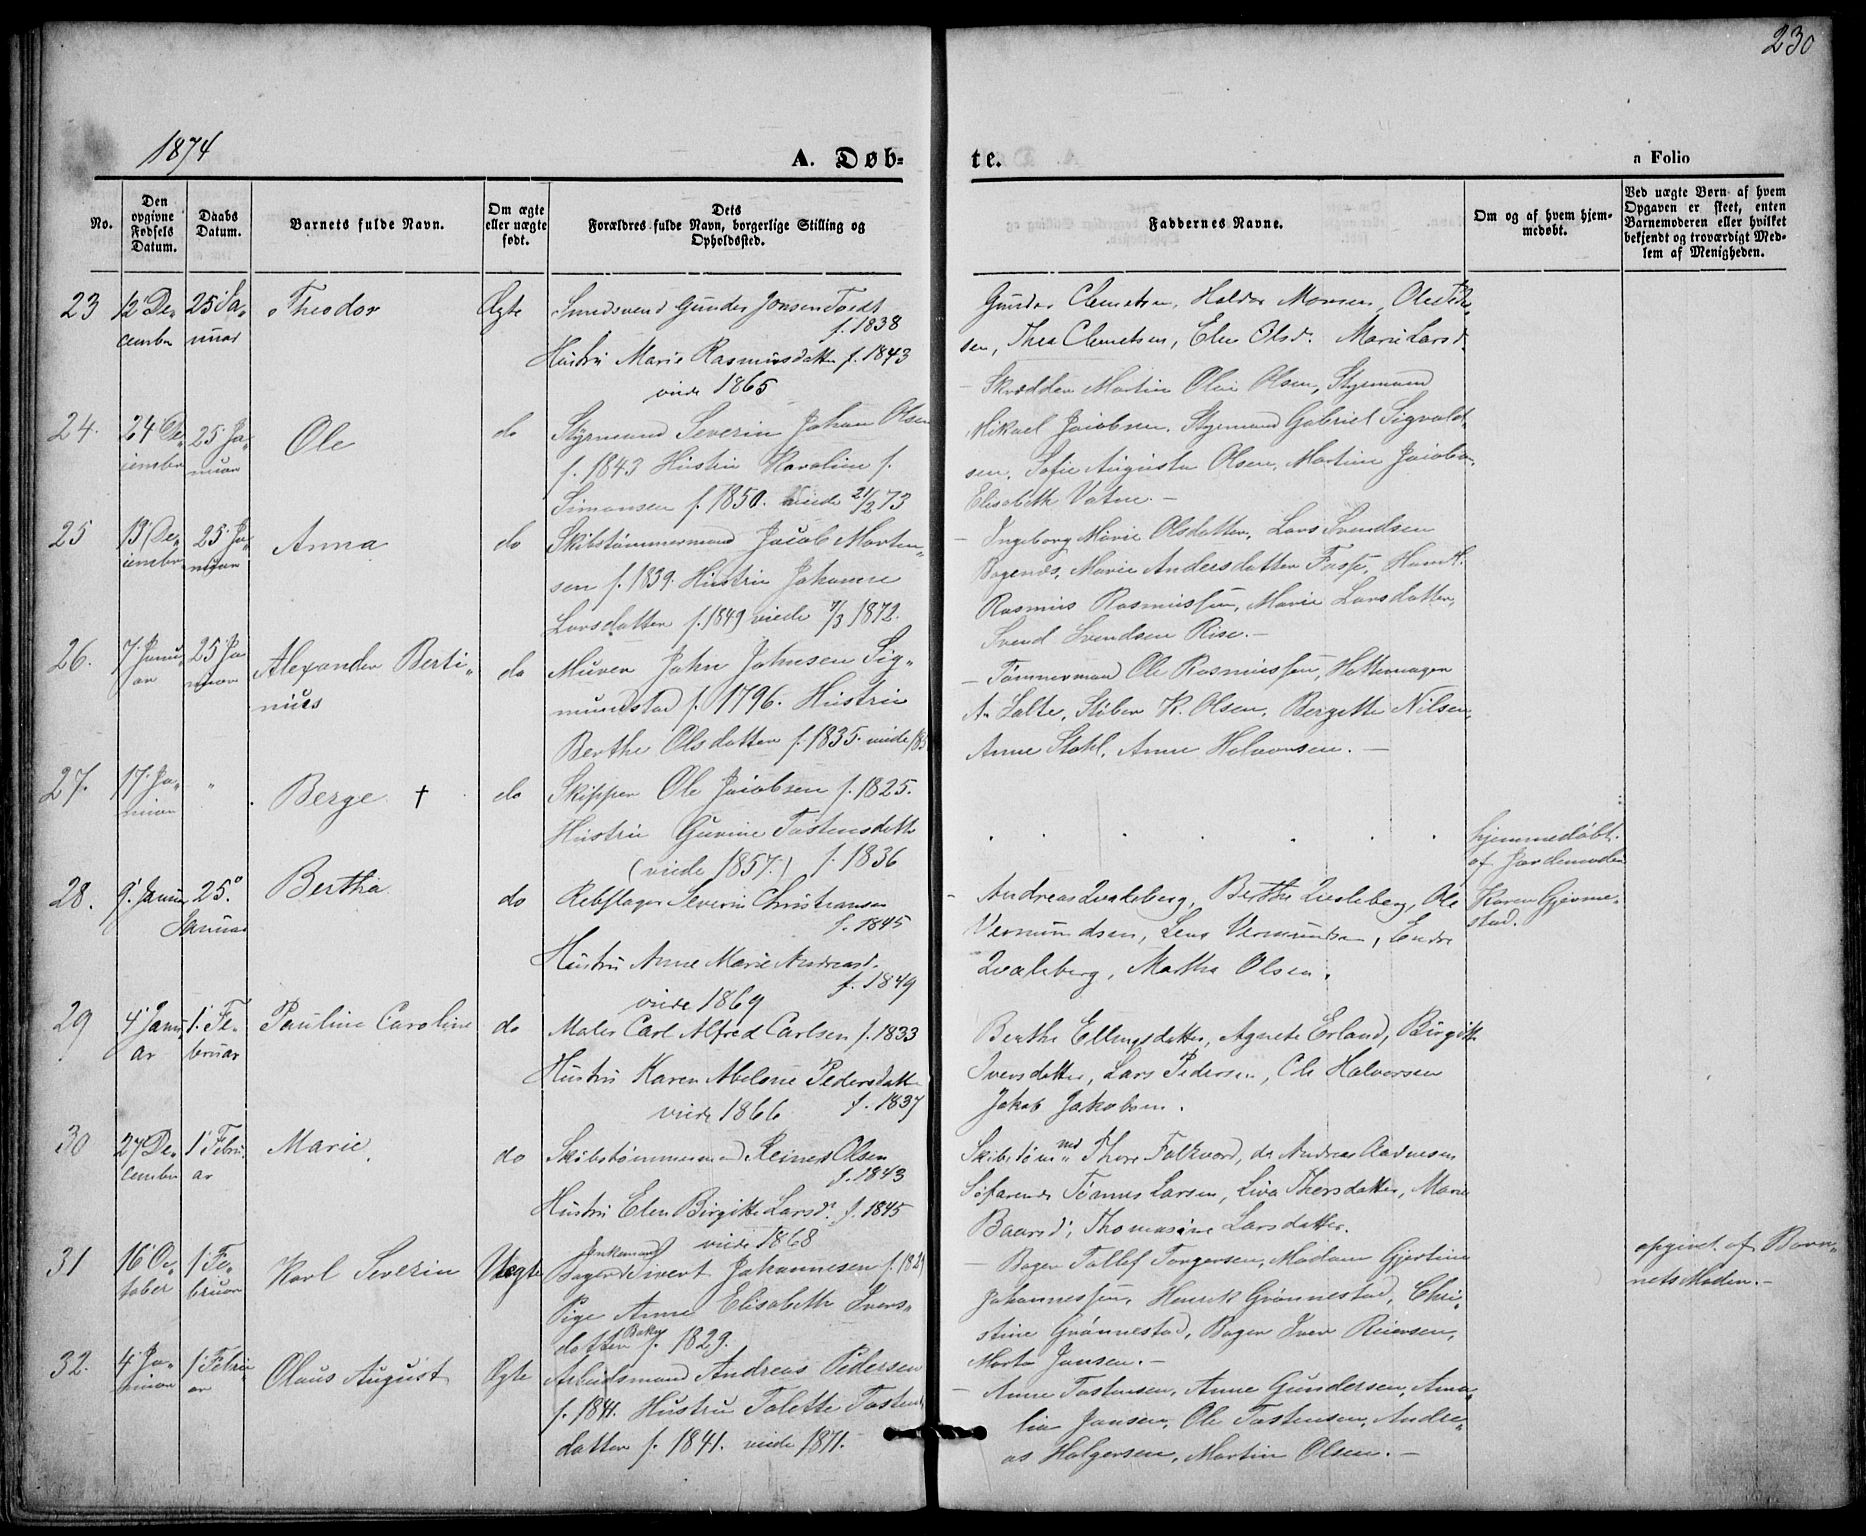 230
1874
A. Døb-
te.
a Folio
No.
Den opgivne Fødsels Datum.
Daabs Datum.
Barnets fulde Navn.
Om ægte eller uægte født.
Dets Forældres fulde Navn, borgerlige Stilling og Opholdssted.
Faddernes Navne.
Om og af hvem hjem-
medøbt.
Ved uægte Børn af hvem
Opgaven er skeet, enten
Barnemoderen eller hvilket
bekjendt og troværdigt Med-
lem af Menigheden.
23 12' De- 25' Ja- Theodor Ægte Smedsvend Gunder Jonsen Toedt
cember nuar f. 1838
Hustru Marie Rasmusdatter f. 1843
viede 1865
Gunder Clemetsen, Haldor Monsen,
sen, Thea Clemetsen, Elen Olsd. Marie Larsd.
24. 24 De- 25' Ja- Ole do Styrmand Severin Johan Olsen
cember nuar f. 1843 Hustru Karoline f.
Simonsen f. 1850. viede 21/2 73
– Skrædder Martin Olai Olsen, Styrmand
Mikael Jacobsen, Styrmand Gabriel Sigvald-
sen, Sofie Augusta Olsen, Martine Jacobs.
Elisabeth Vatne. –
25 13' De- 25' Ja- Anna do Skibstømmermand Jacob Morten-
cember nuar sen f. 1839. Hustru Johanne
Larsdatter f. 1849 viede 7/3 1872.
– Ingeborg Marie Olsdatter, Lars Svendsen
Marie Andersdatter
Rasmus Rasmussen, Marie Larsdatter,
Svend Svendsen Rise. –
26. 7' Janu- 25' Ja- Alexander Berti- do Murer John Johnsen Sig-
ar nuar nius mundstad f. 1796. Hustru
Berthe Olsdatter f. 1835. viede
– Tømmermand Ole Rasmussen, Hattemager
A. Salte, K. Olsen, Bergette Nilsen,
Anne Stahl, Anne Halvorsen. –
27. 17' Ja- " Berge † do Skipper Ole Jacobsen f. 1825.
nuar Hustru Gurine Tostensdatt
(viede 1857.) f. 1836
hjemmedøbt
af Jordemoder
Karen Gjerme-
stad.
28. 9' Januar 25' Bertha do Rebslager Severin Christiansen
Januar f. 1845
Hustru Anne Marie Andreasd.
f. 1849
viede 1869
– Andreas Qvaleberg, Berthe Qvaleberg, Ole
Vermundsen, Lena Vermundsen, Endre
Qvaleberg, Martha Olsen.
29 4' Janu- 1' Fe- Pauline Caroline do Maler Carl Alfred Carlsen f. 1833
ar bruar Hustru Karen Abelone Pedersdatter
viede 1866 f. 1837
Berthe Ellingsdatter, Agnete Erland, Birgitte
Iversdatter, Lars Pedersen, Ole Halvorsen
Jakob Jakobsen.
30 27 De- 1' Febru- Marie do Skibstømmermand Reiner Olsen
cember ar f. 1843
Hustru Elen Birgitte Larsd. f. 1845
viede 1868
Skibstømmd Thore Folkvord, do Andreas Aadnesen
Søfarende Tønnes Larsen, Liva Thorsdatter, Marie
Baarsd; Thomasine Larsdatter.
31 16' Oc- 1' Fe- Karl Severin Uægte Enkemand
tober bruar Bager Sivert Johannesen f. 182
Pige Anne Elisabeth Ivers-
datter f. 1829.
– Bager Tollef Torgersen, Madam Gjertine
Johannessen, Henrik Grønnestad, Chri-
stine Grønnestad, Bager Iver Reiersen,
Marta Jansen. –
opgivet af Bar-
nets Moder. –
32. 4' Ja- 1' Febru- Olaus August Ægte Arbeidsmand Andreas Pedersen
nuar ar f. 1841. Hustru Tolette Tostens
datter f. 1841. viede 1871.
– Anne Tostensen, Anne Gundersen, Ama-
lia Jansen, Ole Tostensen, Andre-
as Holgersen, Martin Olsen. –